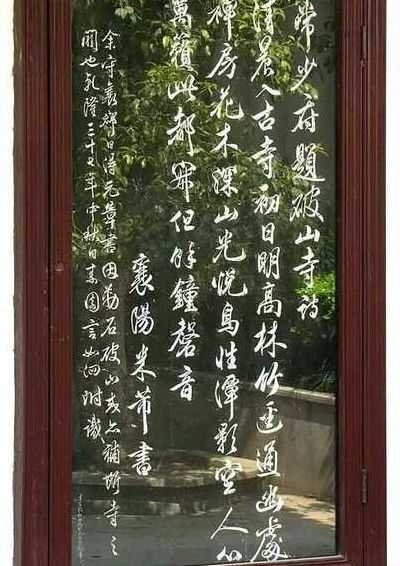 常少府題破山寺詩
清晨入古寺初日明高林竹逕通幽處
禪房花木深山光悅鳥性潭影空人心
萬籟此都寂但餘鐘磬音
襄陽米芾書
余守襄日得元章書因勒石破山或亦補斯寺之
闕也乾隆三十七年中秋日素園言如泗附識